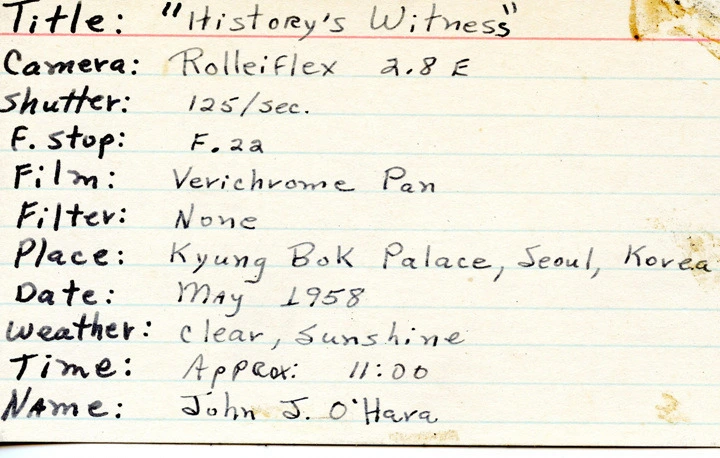 Title: "History's Witness"
Camera: Rolleiflex 2.8 E
Shutter: 125/sec.
F. Stop: F. 22
Film: Verichrome Pan
Filter: None
Place: Kyung Bok Palace, Seoul, Korea
Date: May 1958
Weather: Clear, Sunshine
Time: Approx: 11:00
Name: John J. O'Hara